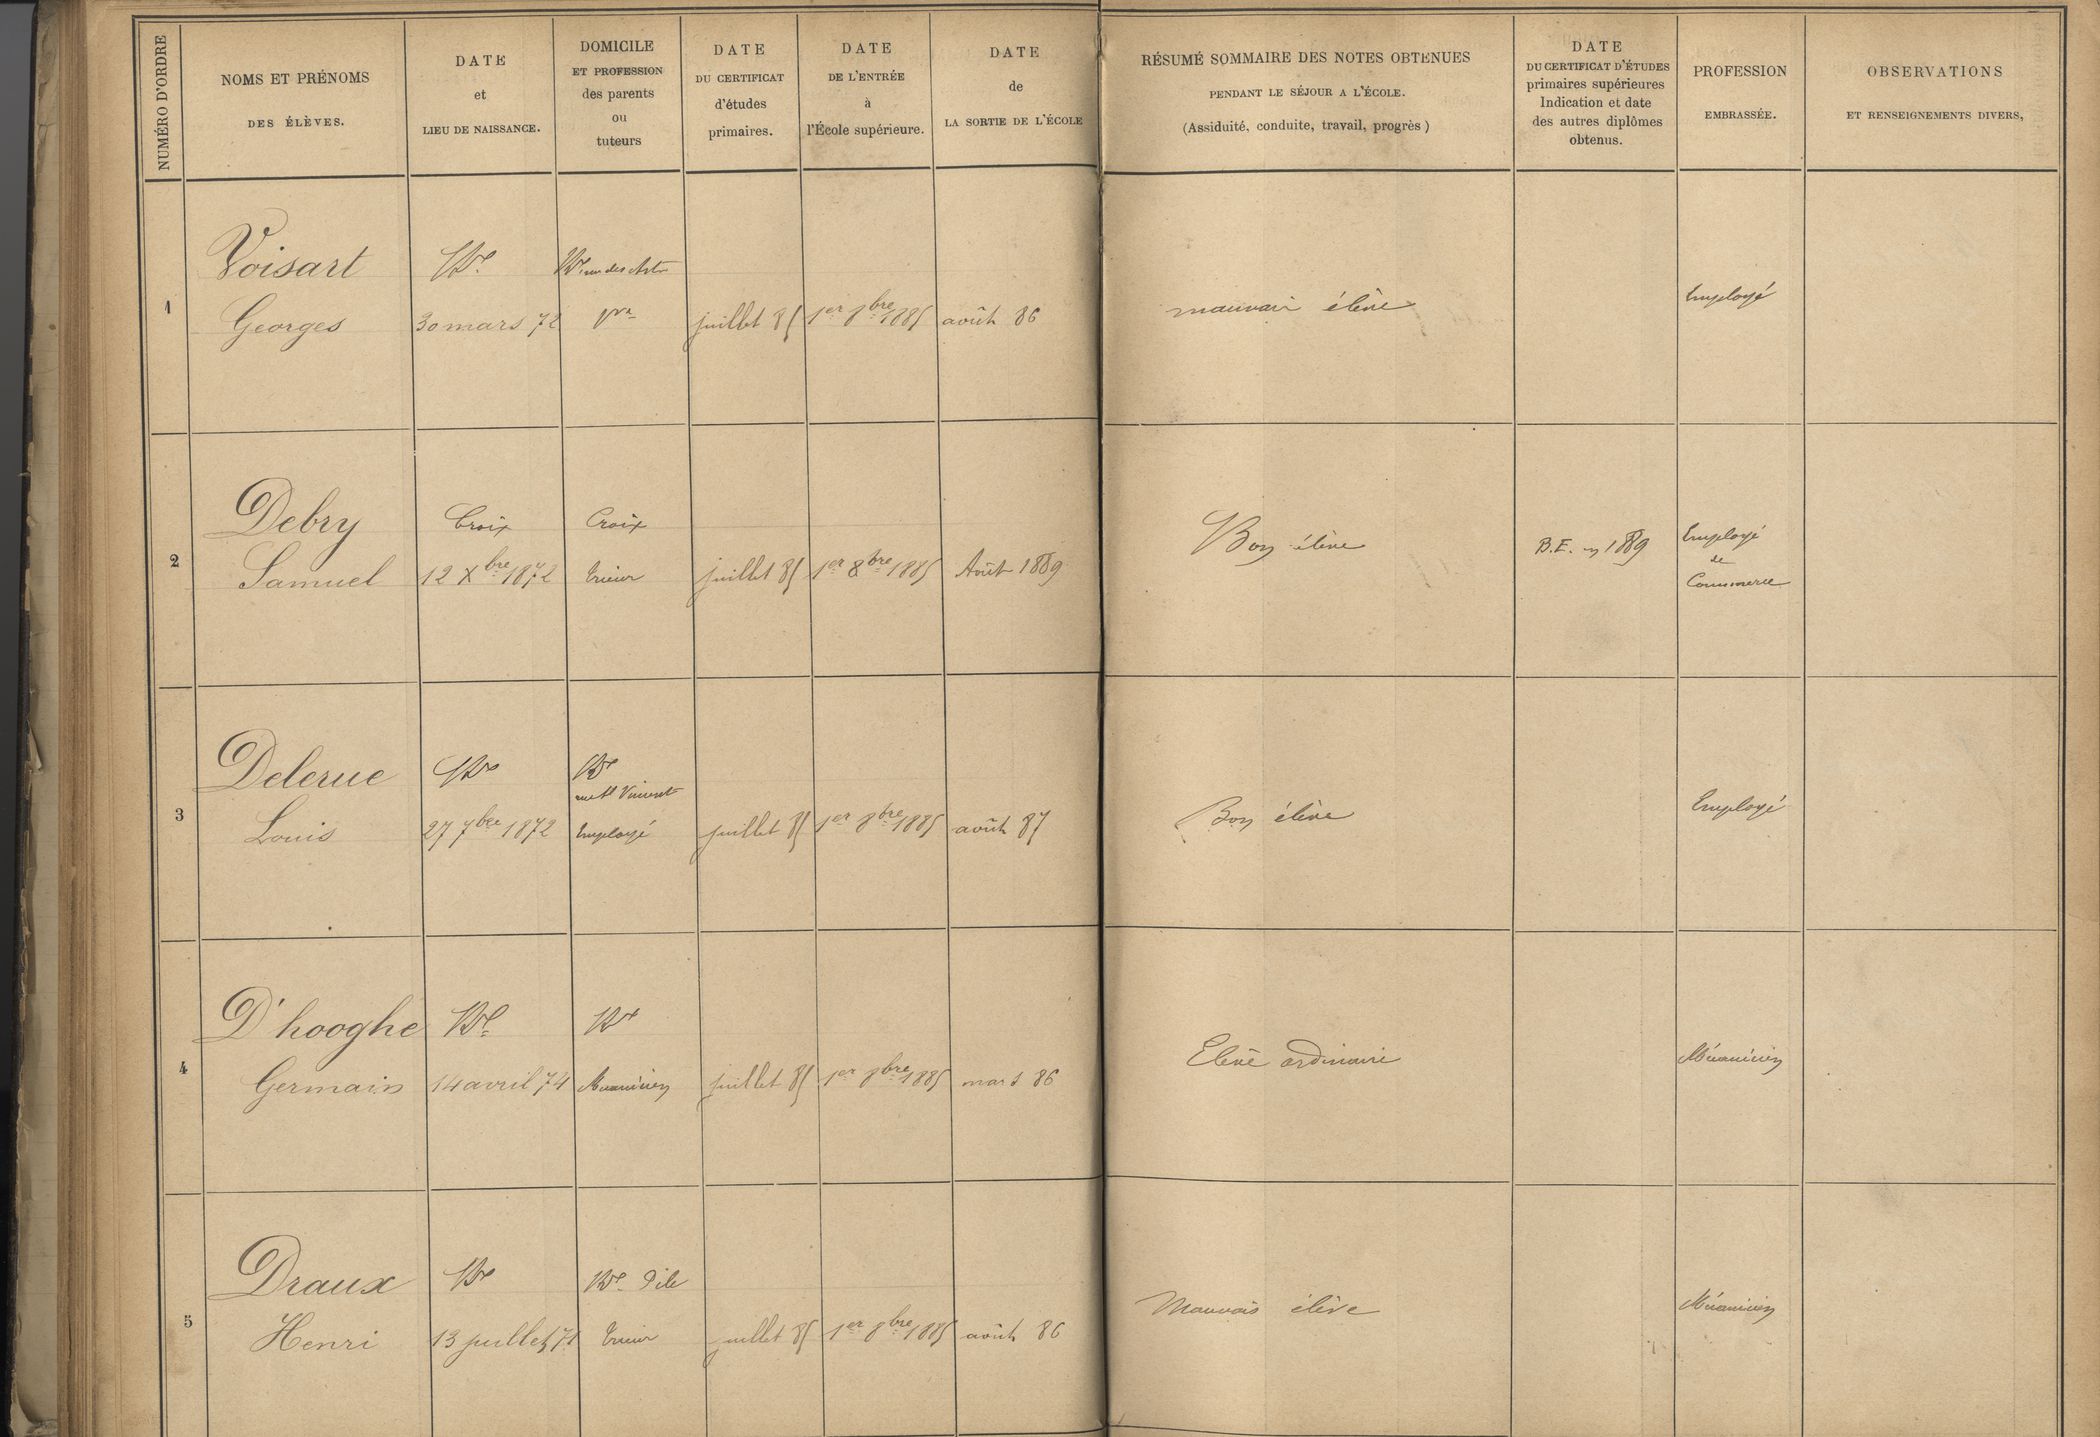 NUMÉRO D'ORDRE
NOMS ET PRÉNOMS
DES ÉLÈVES.
DATE
et
LIEU DE NAISSANCE.
DOMICILE
ET PROFESSION
des parents
ou
tuteurs
DATE
DU CERTIFICAT
d'études
primaires.
DATE
DE L'ENTRÉE
à
l'École supérieure.
DATE
de
LA SORTIE DE L'ÉCOLE
RÉSUMÉ SOMMAIRE DES NOTES OBTENUES
PENDANT LE SÉJOUR A L'ÉCOLE.
(Assiduité, conduite, travail, progrès)
DATE
DU CERTIFICAT D'ÉTUDES
primaires supérieures
Indication et date
des autres diplômes
obtenus.
PROFESSION
EMBRASSÉE.
OBSERVATIONS
ET RENSEIGNEMENTS DIVERS,
1
Voisart
Georges
Rx
30 mars 72
Rx rue des Arts
juillet 85
1er 8bre 1885
août 86
mauvais élève
Employé
2
Debry
Samuel
Croix
12 Xbre 1872
Croix
trieur
juillet 85
1er 8bre 1885
Août 1889
Bon élève
B.E. en 1889
Employé
de
Commerce
3
Delerue
Louis
Rx
27 7bre 1872
Rx
rue St Vincent
Employé
juillet 85
1er 8bre 1885
août 87
Bon élève
Employé
4
D'hooghe
Germain
Rx
14 avril 74
Rx
Mécanicien
juillet 85
1er 8bre 1885
mars 86
Elève ordinaire
Mécanicien
5
Draux
Henri
Rx
13 juillet 71
Rx Pile
trieur
juillet 85
1er 8bre 1885
août 86
Mauvais élève
Mécanicien